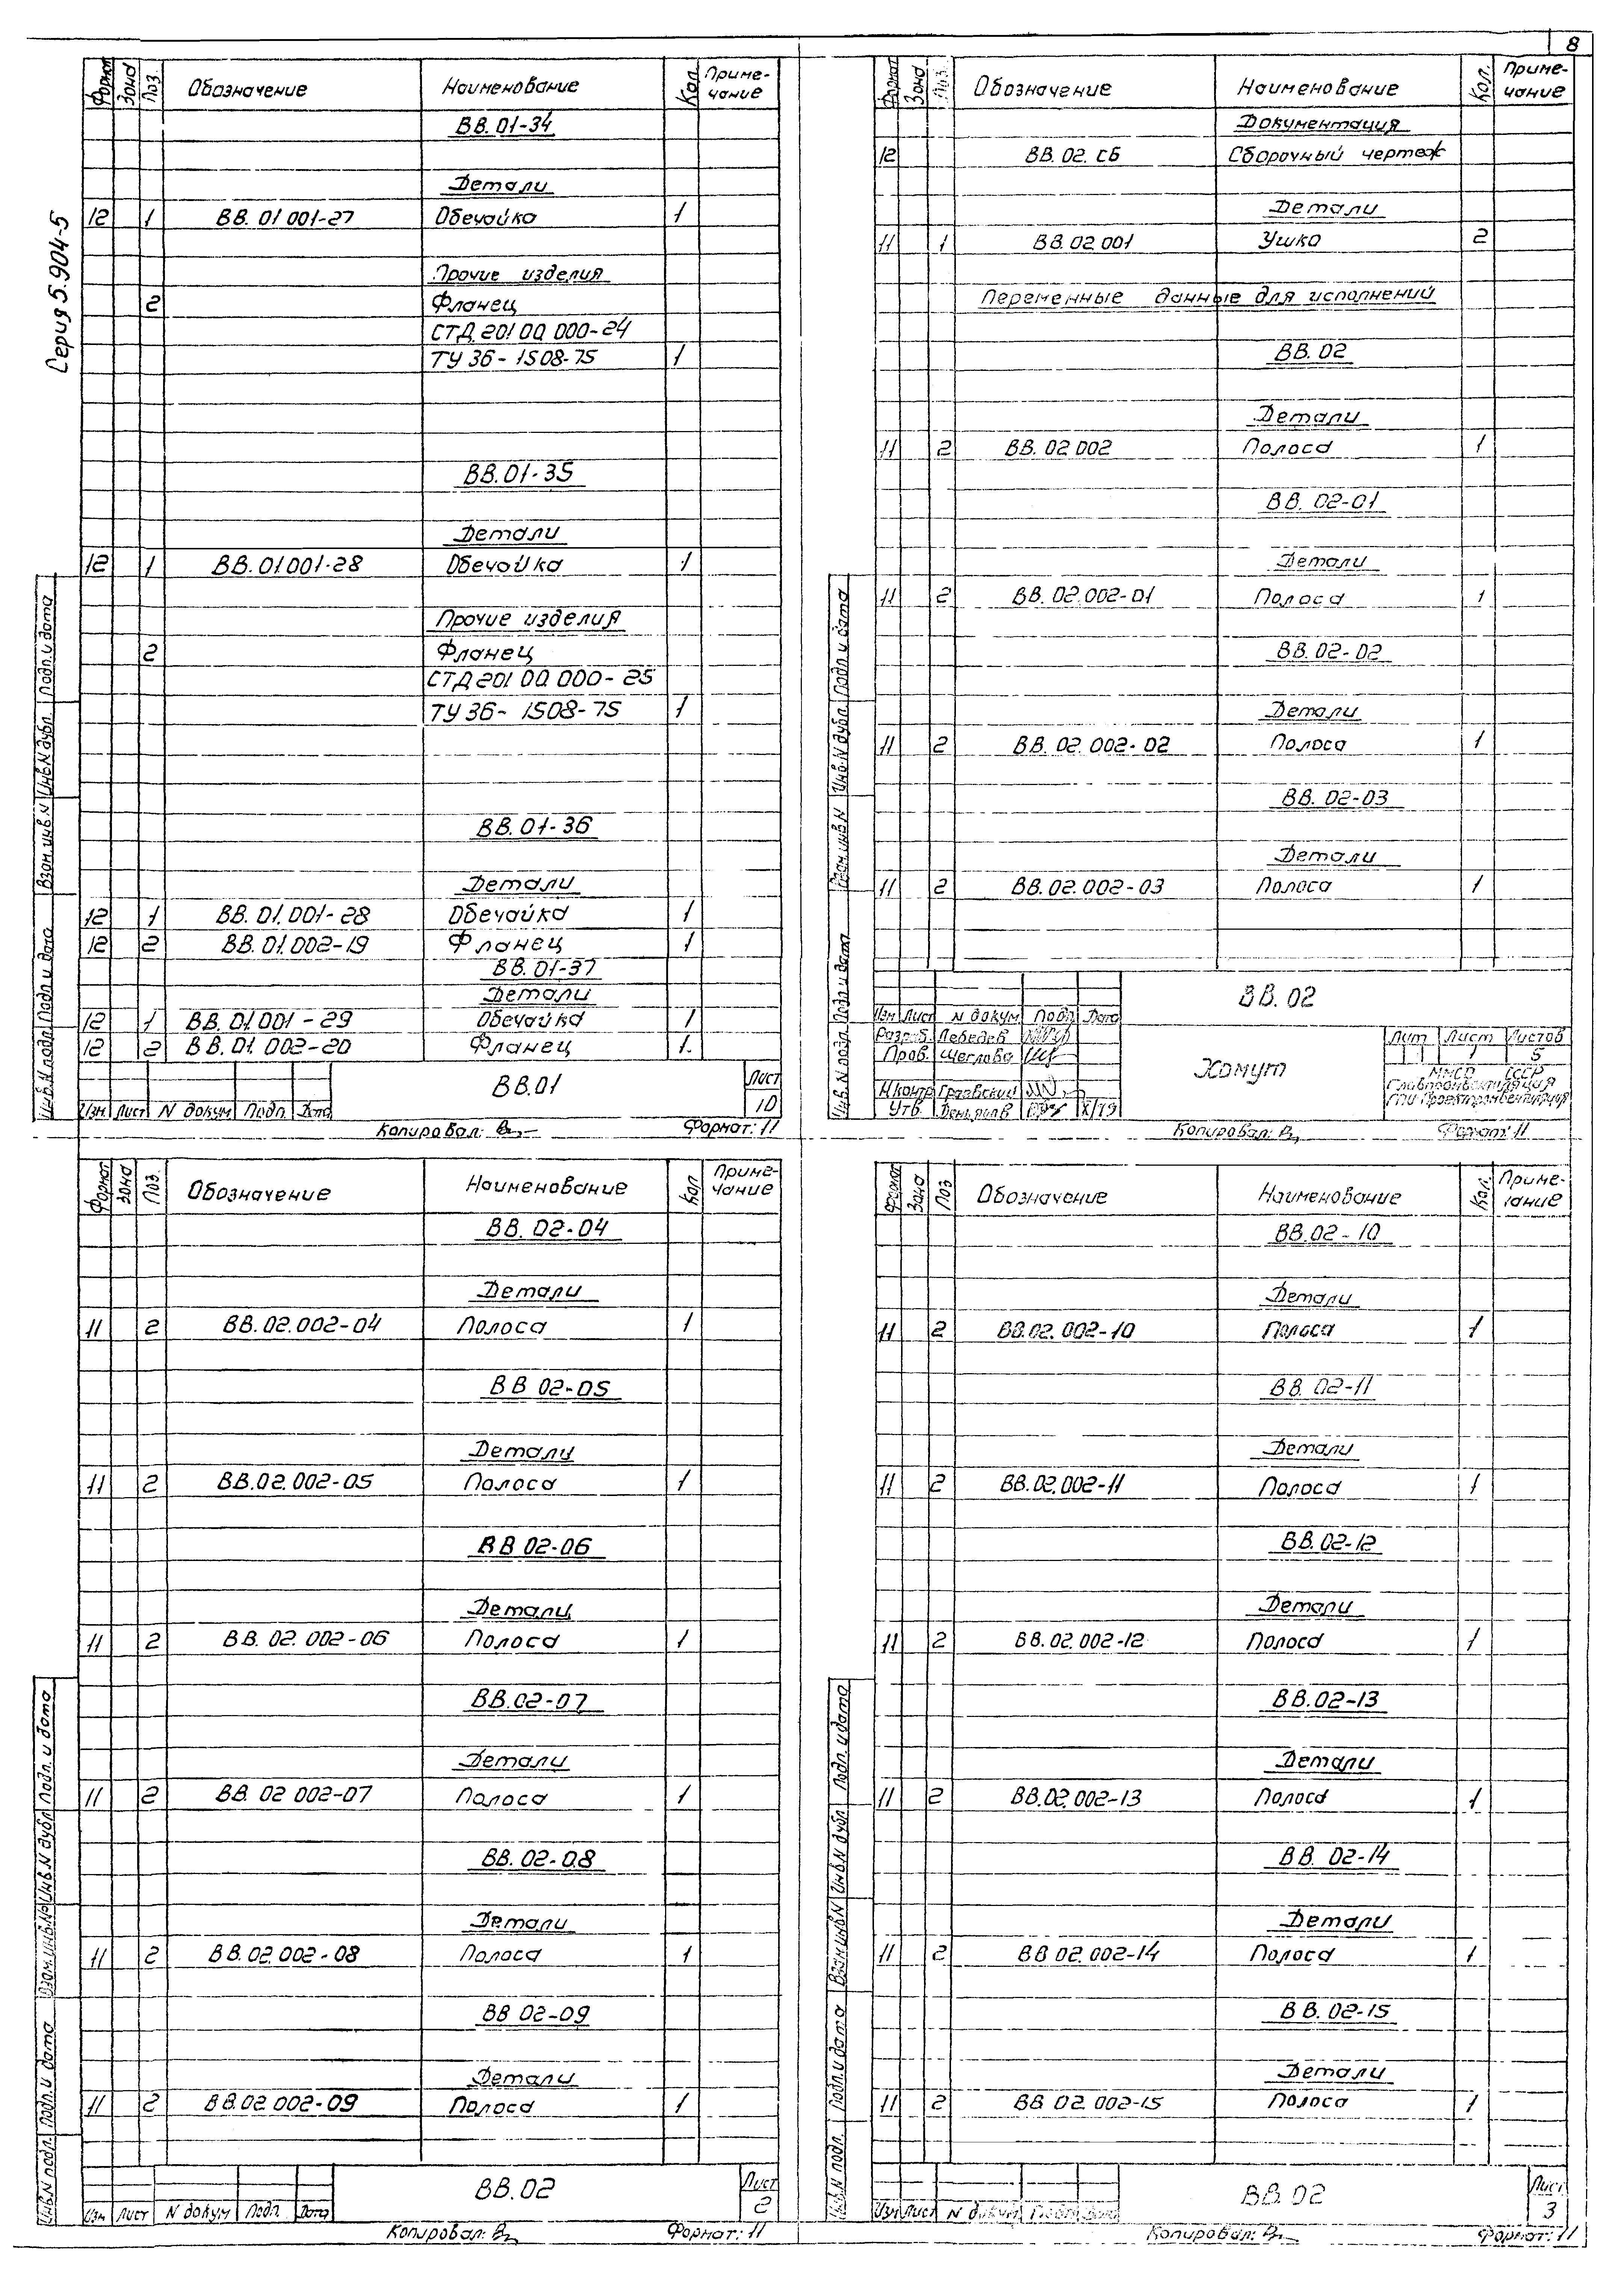 8
Серия 5.904-5
Формат Зона Поз. Обозначение Наименование Кол. Приме-
чание
ВВ. 01-34
Детали
12 1 ВВ. 01 001-27 Обечайка 1
Прочие изделия
2 Фланец
СТД 201 00. 000-24
ТУ 36-1508-75 1
ВВ. 01-35
Детали
12 1 ВВ. 01 001-28 Обечайка 1
Прочие изделия
2 Фланец
СТД 201 00. 000-25
ТУ 36-1508-75 1
ВВ. 01-36
Детали
12 1 ВВ. 01. 001-28 Обечайка 1
12 2 ВВ. 01. 002-19 Фланец 1
ВВ. 01-37
Детали
12 1 ВВ. 01 001-29 Обечайка 1
12 2 ВВ. 01. 002-20 Фланец 1
Инв.N подл. Подп. и дата Взам. инв. N Инв.N дубл. Подп. и дата
ВВ.01
Лист
10
Изм. Лист N докум Подп. Дата
Копировал: Формат: 11
Формат Зона Поз. Обозначение Наименование Кол. Приме-
чание
Документация
12 ВВ. 02. СБ Сборочный чертеж
Детали
11 1 ВВ. 02 001 Ушко 2
Переменные данные для исполнений
ВВ. 02
Детали
11 2 ВВ. 02 002 Полоса 1
ВВ. 02-01
Детали
11 2 ВВ. 02. 002-01 Полоса 1
ВВ. 02-02
Детали
11 2 ВВ. 02. 002-02 Полоса 1
ВВ. 02-03
Детали
11 2 ВВ. 02. 002-03 Полоса 1
Инв. N подл. Подп и дата Взам. инв. N Инв. N дубл. Подп. и дата
ВВ. 02
Изм Лист N докум. Подп. Дата
Разраб. Лебедев
Пров. Щеглова
Н.контр
Утв. X/79
Хомут
Лит Лист Листов
1 5
ММСС СССР
Главпромвентиляция
ГПИ Проектпромвентиляция
Копировал: Формат: 11
Формат Зона Поз. Обозначение Наименование Кол Приме-
чание
ВВ. 02-04
Детали
11 2 ВВ. 02. 002-04 Полоса 1
ВВ 02-05
Детали
11 2 ВВ. 02. 002-05 Полоса 1
ВВ 02-06
Детали
11 2 ВВ. 02. 002-06 Полоса 1
ВВ. 02-07
Детали
11 2 ВВ 02 002-07 Полоса 1
ВВ. 02-08
Детали
11 2 ВВ. 02. 002-08 Полоса 1
ВВ 02-09
Детали
11 2 ВВ. 02 002-09 Полоса 1
Инв.N подл. Подп. и дата Взам. инв.№ Инв.N дубл. Подп. и дата
ВВ. 02
Лист
2
Изм Лист N докум Подп. Дата
Копировал: Формат: 11
Формат Зона Поз Обозначение Наименование Кол. Приме-
чание
ВВ. 02-10
Детали
11 2 ВВ. 02. 002-10 Полоса 1
ВВ. 02-11
Детали
11 2 ВВ. 02. 002-11 Полоса 1
ВВ. 02-12
Детали
11 2 ВВ. 02. 002-12 Полоса 1
ВВ. 02-13
Детали
11 2 ВВ. 02. 002-13 Полоса 1
ВВ. 02-14
Детали
11 2 ВВ 02. 002-14 Полоса 1
ВВ. 02-15
Детали
11 2 ВВ 02. 002-15 Полоса 1
Инв.N подл. Подп. и дата Взам инв.N Инв.N дубл. Подп. и дата
ВВ. 02
Лист
3
Изм Лист N докум Подп. Дата
Копировал: Формат: 11